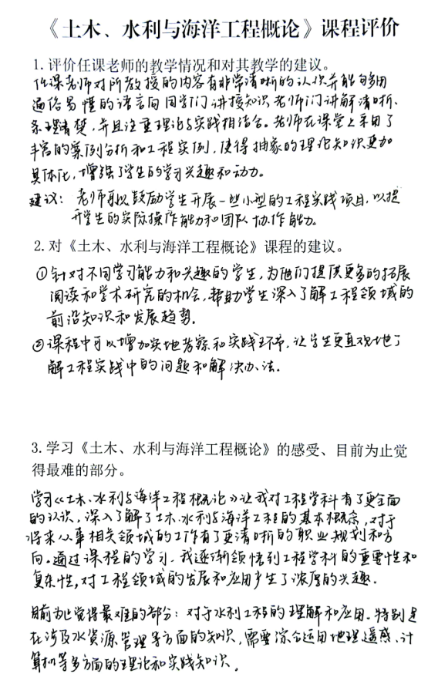 《土木、水利与海洋工程概论》课程评价
1. 评价任课老师的教学情况和对其教学的建议。
任课老师对所教授的内容有非常清晰的认识并能够用
通俗易懂的语言向同学们讲授知识老师们讲解清晰、
条理清楚，并且注重理论与实践相结合。老师在课堂上采用了
丰富的案例分析和工程实例，使得抽象的理论知识更加
具体化，增强了学生的学习兴趣和动力。
建议：老师可以鼓励学生开展一些小型的工程实践项目，以提
升学生的实际操作能力和团队协作能力。
2. 对《土木、水利与海洋工程概论》课程的建议。
①针对不同学习能力和兴趣的学生，为他们提供更多的拓展
阅读和学术研究的机会，帮助学生深入了解工程领域的
前沿知识和发展趋势。
②课程中可以增加实地考察和实践环节，让学生更直观地了
解工程实践中的问题和解决办法.
3. 学习《土木、水利与海洋工程概论》的感受、目前为止觉
得最难的部分。
学习《土木、水利与海洋工程概论》让我对工程学科有了更全面
的认识，深入了解了土木、水利与海洋工程的基本概念，对于
将来从事相关领域的工作有了更清晰的职业规划和方
向。通过课程的学习，我逐渐领悟到工程学科的重要性和
复杂性，对工程领域的发展和应用产生了浓厚的兴趣.
目前为止觉得最难的部分：对于水利工程的理解和应用。特别是
在涉及水资源管理等方面的知识，需要综合运用地理遥感、计
算机等多方面的理论和实践知识。